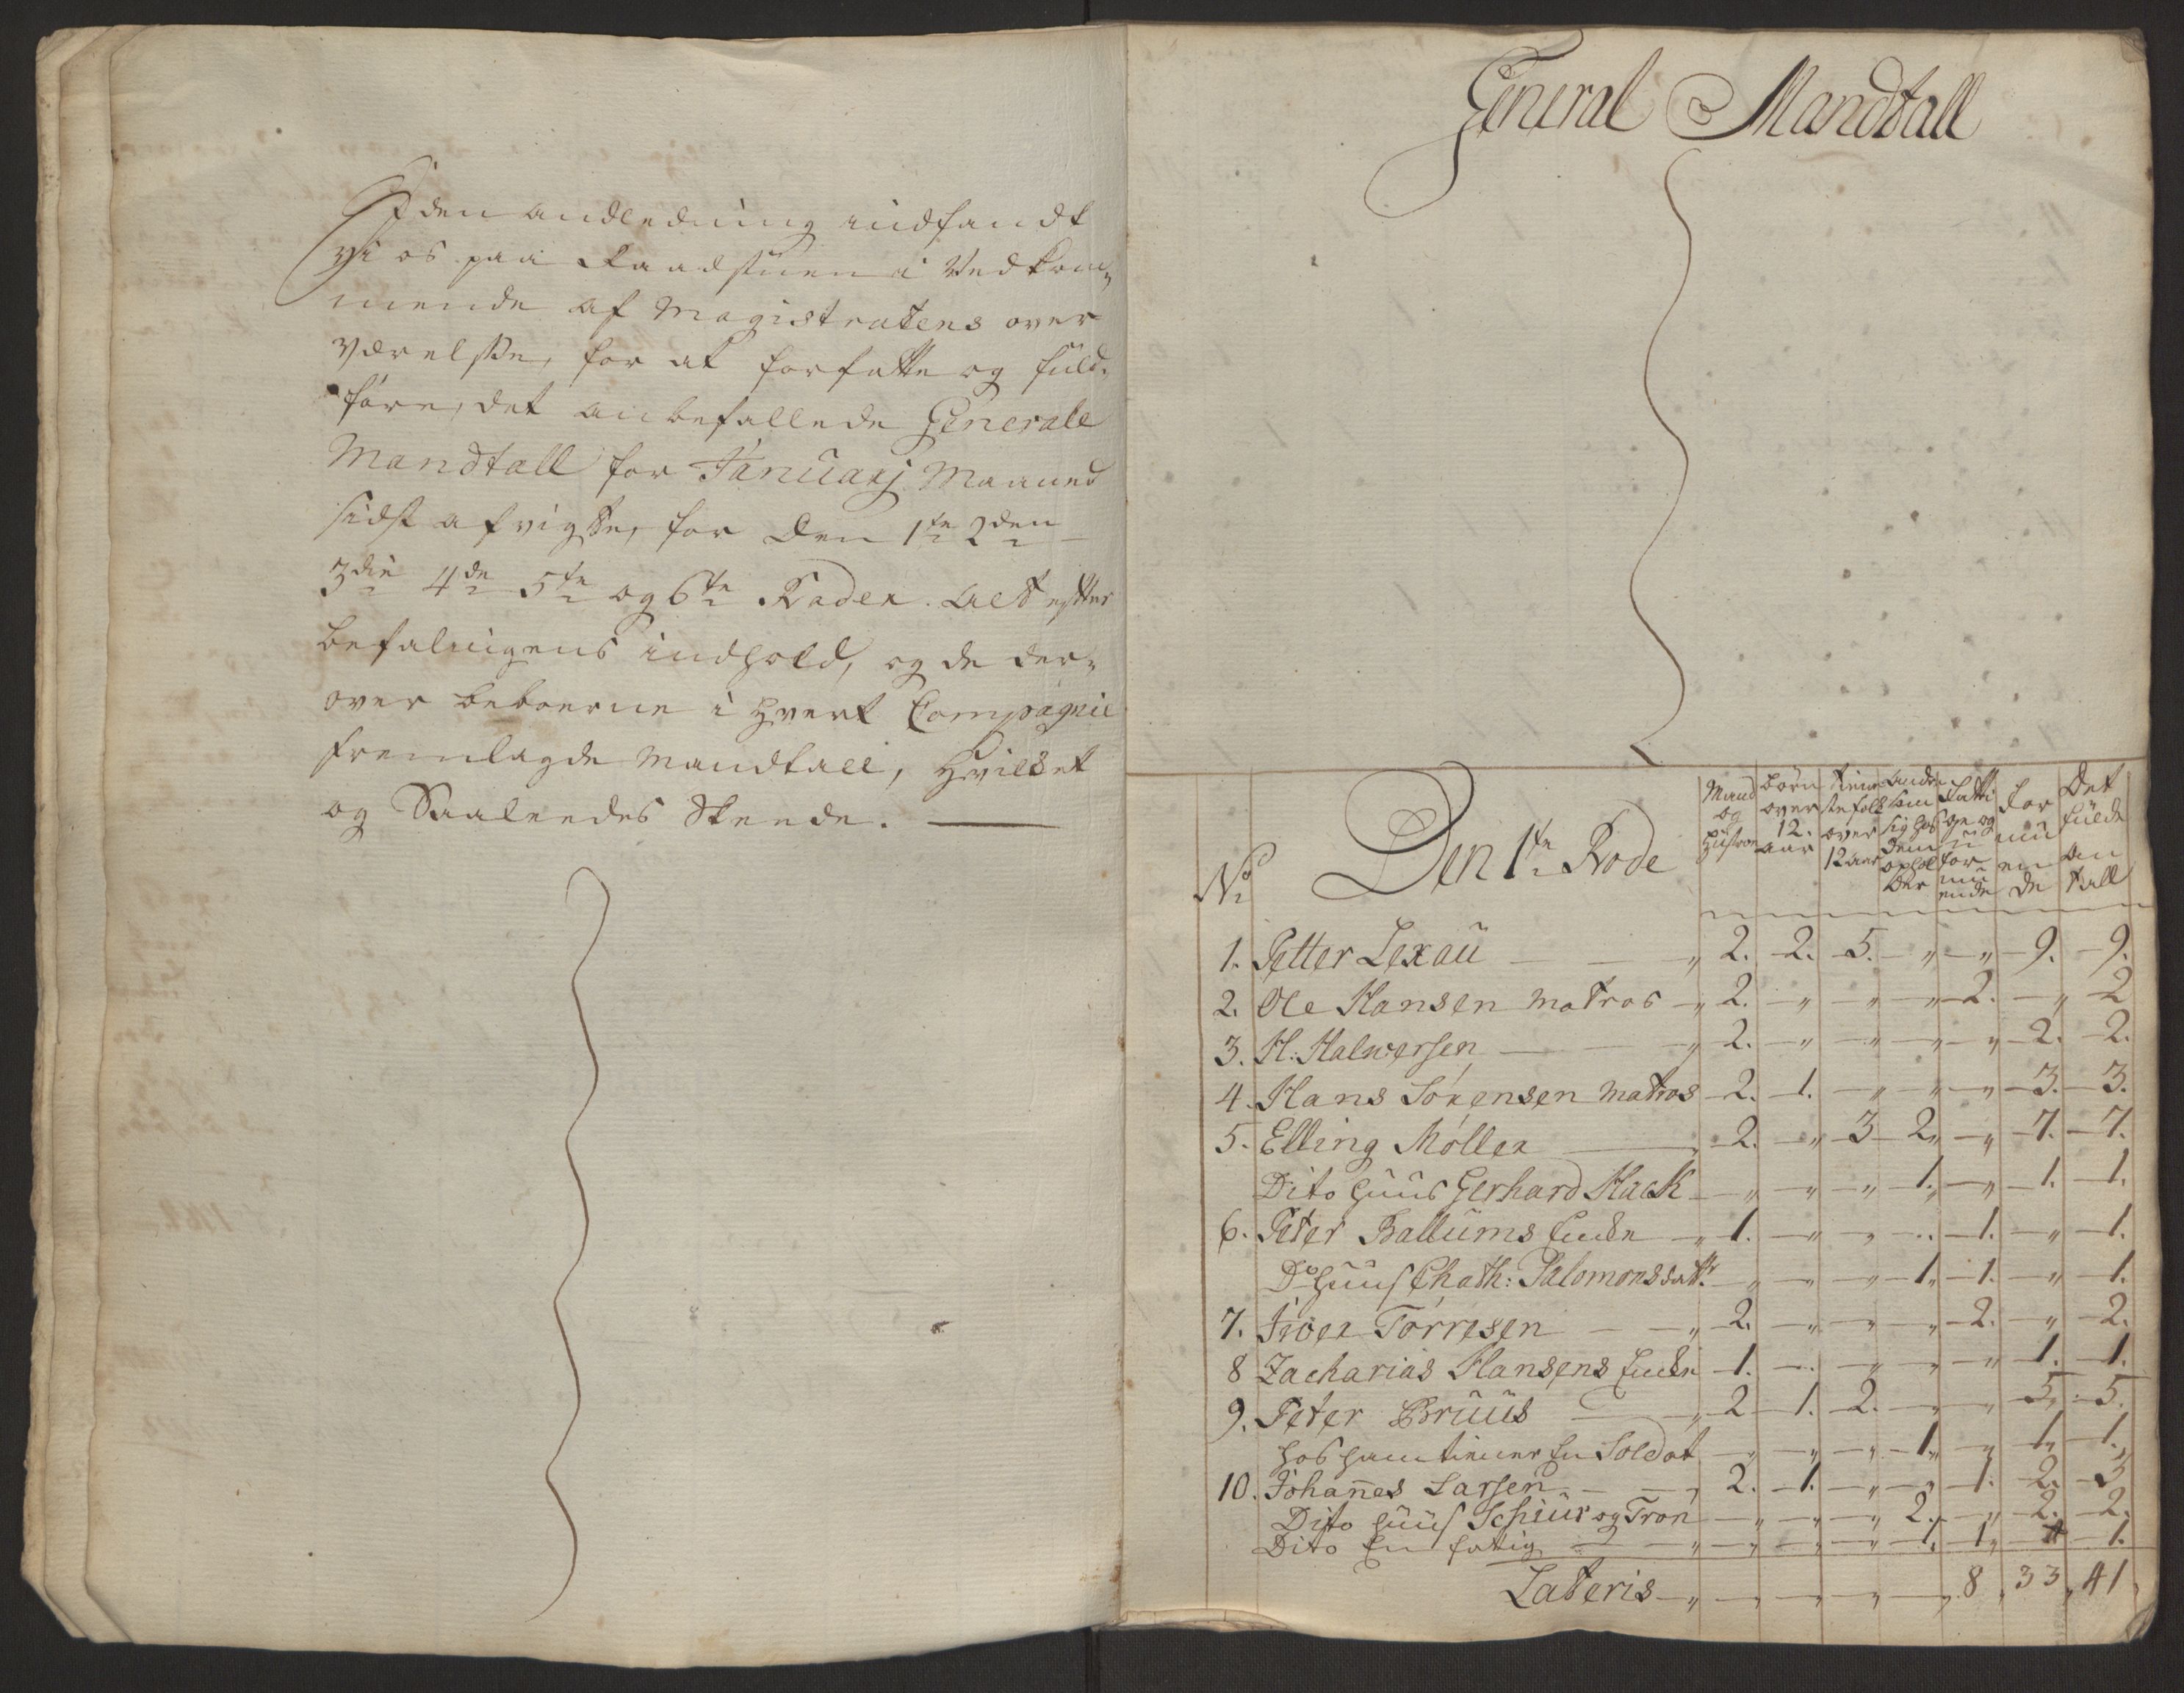 I den andledning indfandt
vi os paa Raadstuen i Vedkom„
mende af Magistratens over
værelsse, for at forfatte og fuld„
føre, det anbefallede Generale
Mandtall for Januarj Maaned
sidst afvigte, for den 1te 2den
3die 4de 5te og 6te Roder. alt efter
befalnigens indhold, og de der„
over beboerne i hvert Compagnie
fremlagde Mandtall, hvilket
og Saaleedes Skeede. —
General Mandtall
No Den 1te Rode Mand og Hustroe Børn over 12. aar tieneste folk over 12 aar Andre som sig hos dem opholder Fatti ge og u for mu ende For mu en de Det fulde An tall
1. Petter Lexau — — „ 2. 2. 5. „ „ 9. 9.
2. Ole Hansen Matros „ 2. „ „ „ 2. „ 2
3. H: Halwersen — — „ 2. „ „ „ „ 2. 2.
4. Hans Sørensen Matros 2. 1. „ „ „ 3. 3.
5. Elling Møller — „ 2. „ 3 2„ „ 7. 7.
Dito huus Gerhard Hack „ „ „ 1. „ 1. 1.
6. Peter Ballums Encke „ 1. „ „ „ 1. „ 1.
Do huus Chath: Salomonsdattr „ „ „ 1„ 1. „ 1.
7. Iver Torresen — „ 2. „ „ „ 2. „ 2.
8 Zacharias Hansens Encke 1. „ „ „ „ 1. 1.
9. Peter Bruus — „ 2 1. 2. „ „ 5„ 5.
hos ham tiener En Soldat „ „ „ 1„ „ 1„ 1„
10. Johannes Larsen — „ 2. 1. „ „ 1. 2. 3
Dito huus Schiur og Tron „ „ „ 2„ „ 2. 2.
Dito En fattig — „ „ „ „ 1. 1„ 1.
Lateris „ „ „ „ „ 8 „ 33 „ 41„